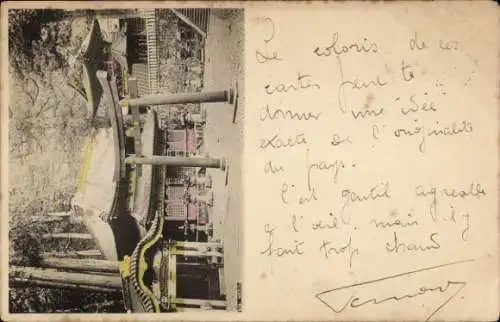 Le coloris de ces
cartes peut te
donner une idée
exacte de l'originalité
du pays.
C'est gentil agréable
à l'œil, mais il y
fait trop chaud